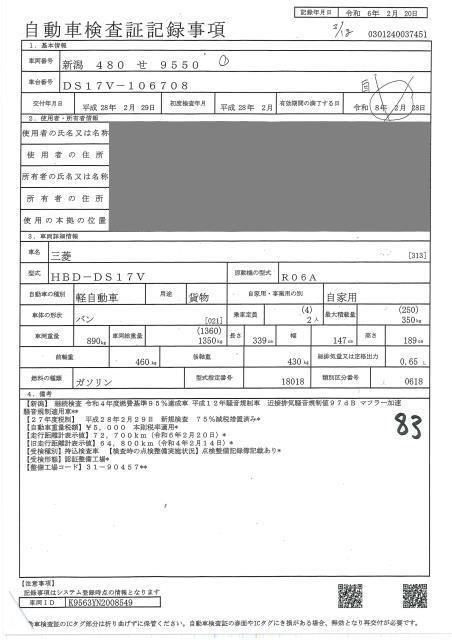 記録年月日 令和 6年 2月 20日
自動車検査証記録事項
2/12 0301240037451
1. 基本情報
車両番号 新潟 480 せ 9550
車台番号 DS17V-106708
交付年月日 平成 28年 2月 29日 初度検査年月 平成 28年 2月 有効期間の満了する日 令和 8年 2月 28日
2. 使用者・所有者情報
使用者の氏名又は名称
使用者の住所
所有者の氏名又は名称
所有者の住所
使用の本拠の位置
3. 車両詳細情報
車名 三菱 [313]
型式 HBD-DS17V 原動機の型式 R06A
自動車の種別 軽自動車 用途 貨物 自家用・事業用の別 自家用
車体の形状 バン [021] 乗車定員 (4) 2人 最大積載量 (250) 350kg
車両重量 890kg 車両総重量 (1360) 1350kg 長さ 339cm 幅 147cm 高さ 189cm
前軸重 460kg 後軸重 430kg 総排気量又は定格出力 0.65 L
燃料の種類 ガソリン 型式指定番号 18018 類別区分番号 0618
4. 備考
【新潟】 継続検査 令和4年度燃費基準95%達成車 平成12年騒音規制車 近接排気騒音規制値97dB マフラー加速
騒音規制適用車**
【27年度税制】 平成28年2月29日 新規検査 75%減税措置済み*
【自動車重量税額】 ¥5,000 本則税率適用*
【走行距離計表示値】72,700km(令和6年2月20日)*
【旧走行距離計表示値】64,800km(令和4年2月14日)*
【受検種別】持込検査車 【検査時の点検整備実施状況】点検整備記録簿記載あり*
【受検形態】認証整備工場*
【整備工場コード】31-90457**
83
【注意事項】
記録事項はシステム登録時点の情報となります
車両ID K9563YN2008549
自動車検査証のICタグ部分は折り曲げずに保管ください。自動車検査証の券面やICタグにき損がある場合、無効となり再交付が必要です。